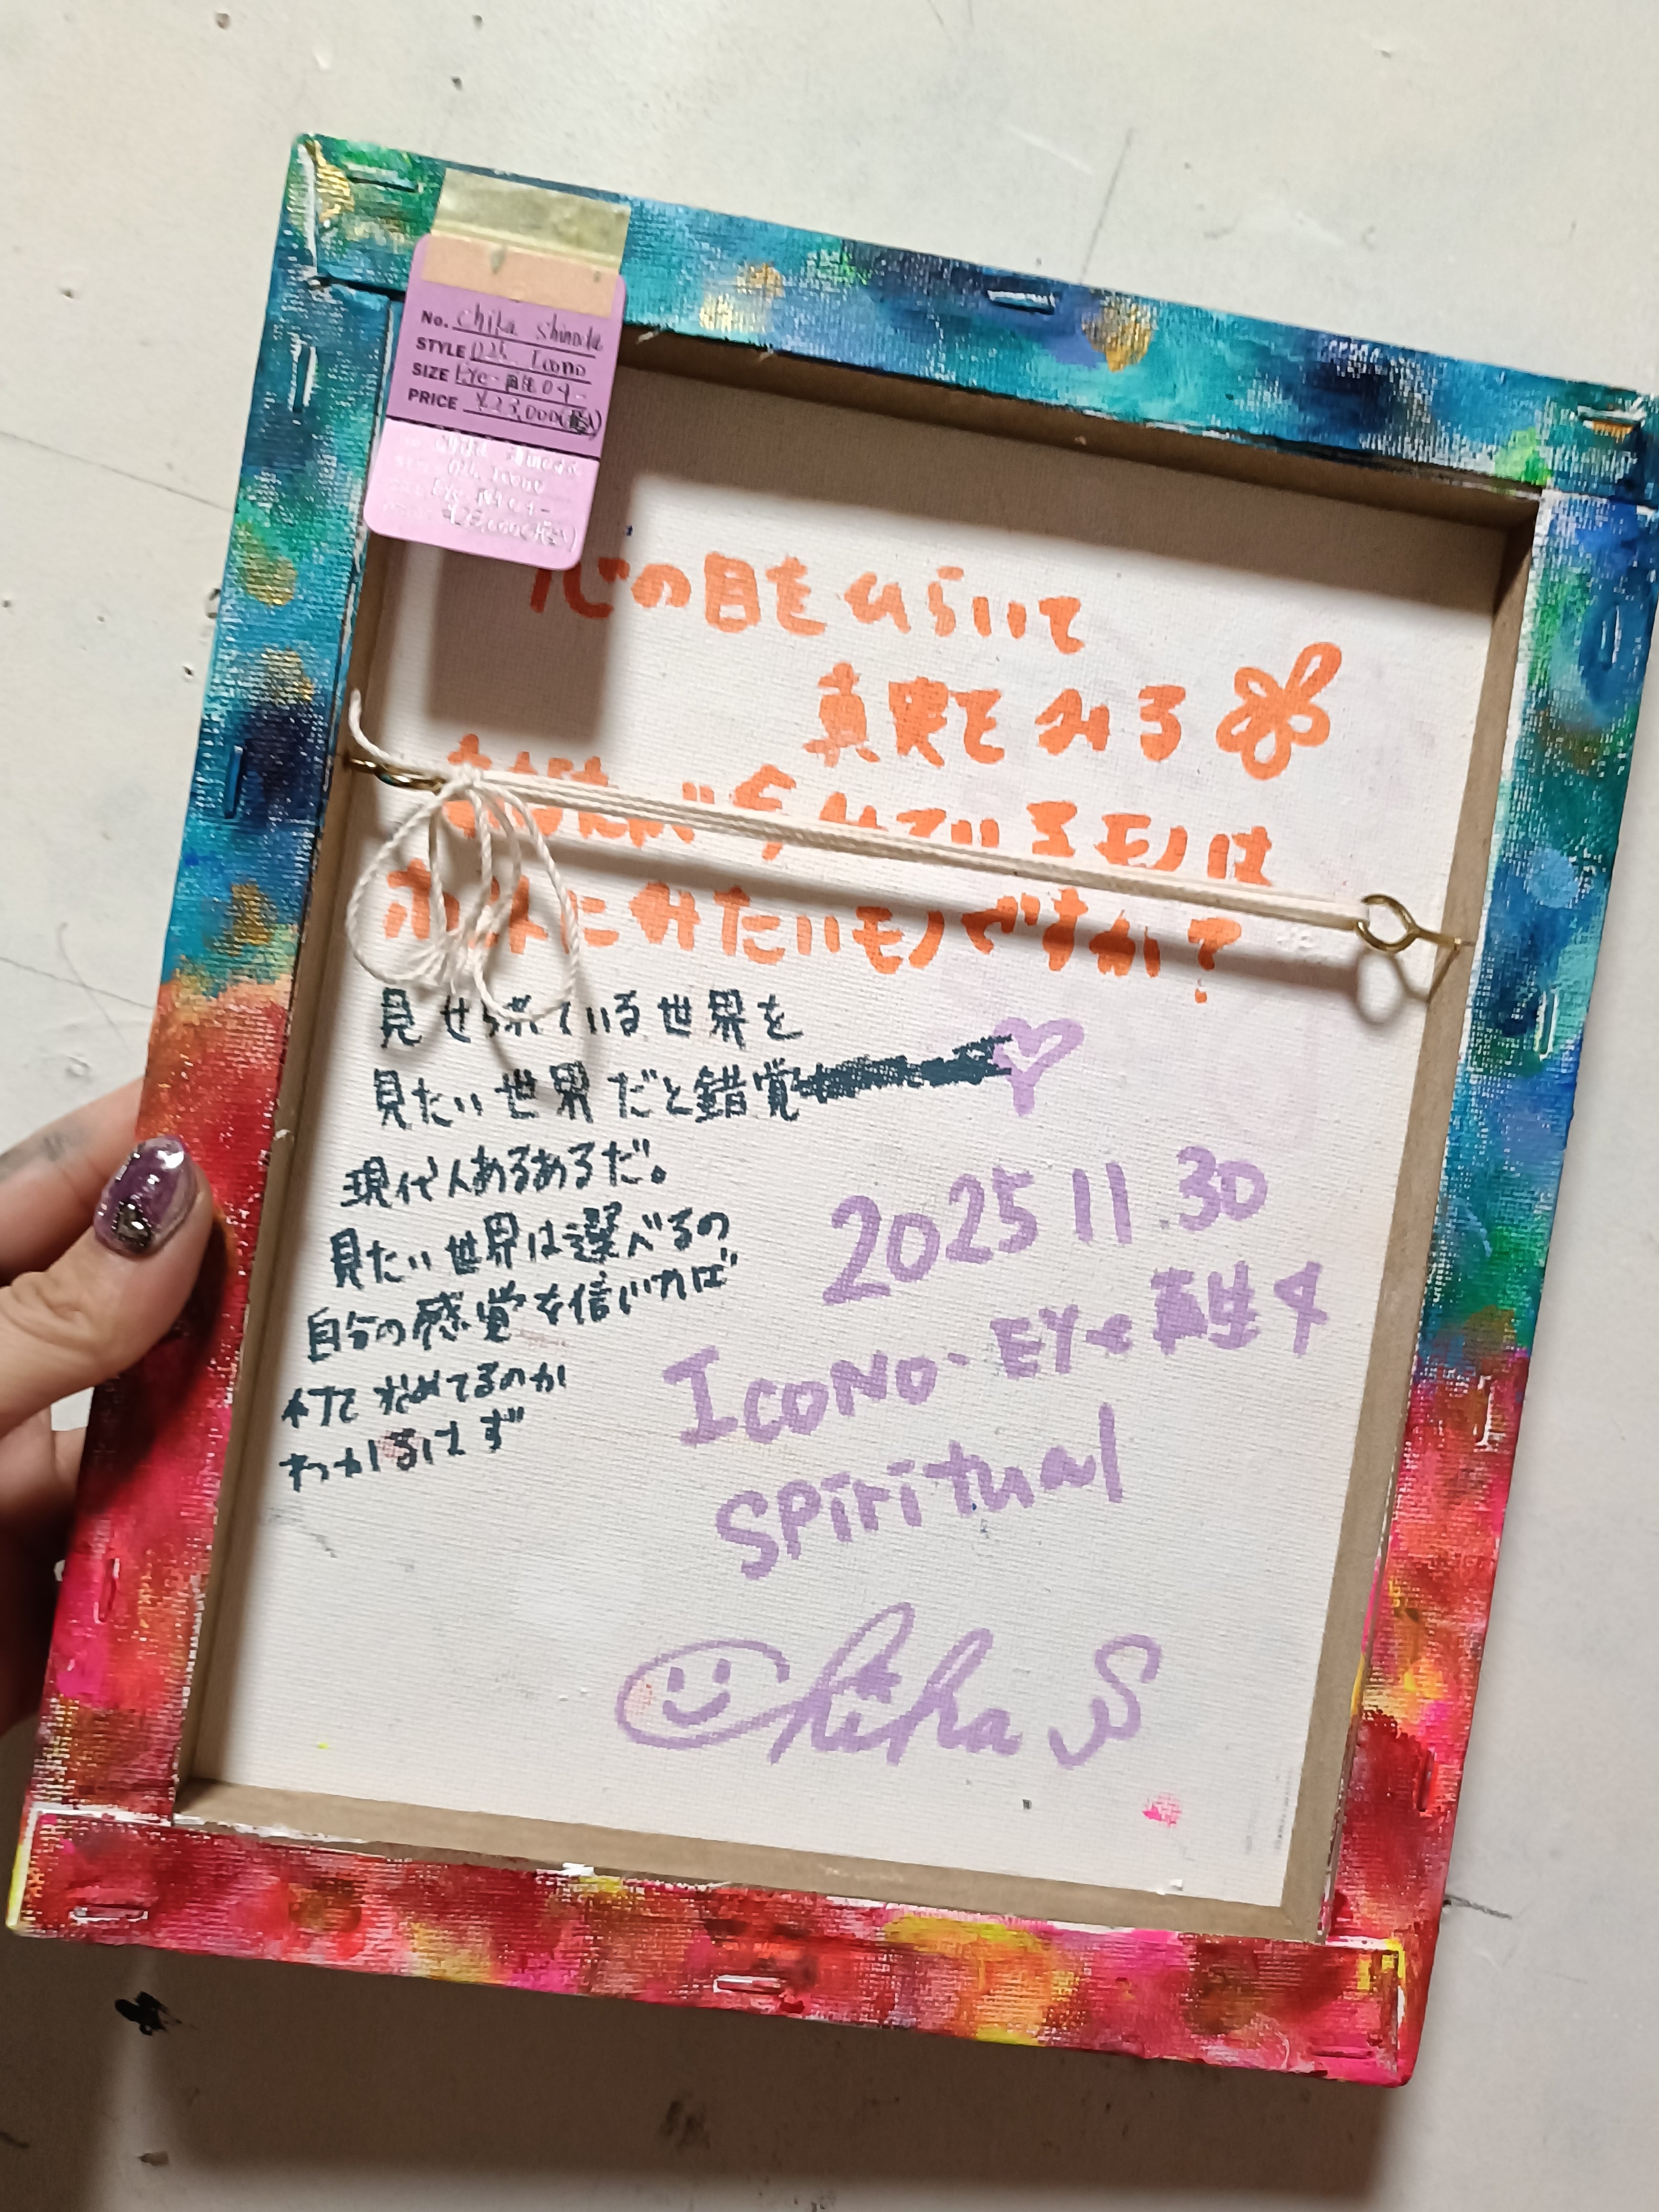 No. Chika Shinoda
STYLE 026 Icono
SIZE Eye-再生04-
PRICE ¥23,000(税込)
心の目をひらいて
真実をみる
あなたが今みているモノは
ホントにみたいモノですか?
見せられている世界を
見たい世界だと錯覚
現代人あるあるだ。
見たい世界は選べるの
自分の感覚を信じれば
何を求めてるのか
わかるはず
2025 11.30
ICONO-EYe再生4
SPiritual
Chika S